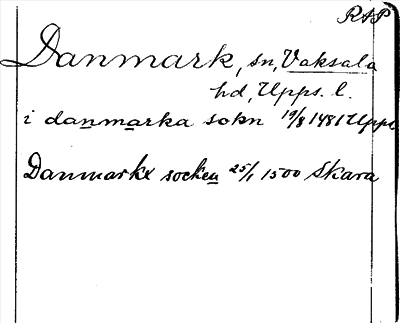 RAP
Danmark, sn, Vaksala
hd, Upps. l.
i danmarka sokn 19/8 1481 Upps
Danmarkx socken 25/1 1500 Skara